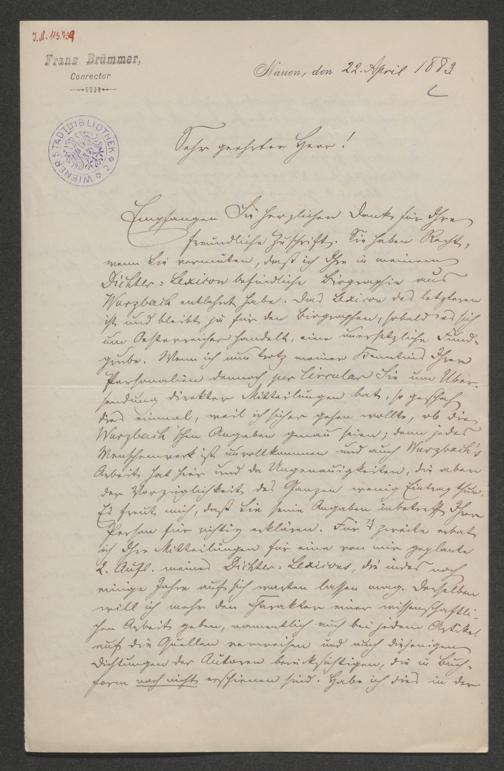 I.N. 113.739
Franz Brümmer,
Conrector
Nauen, den 22. April 1883
WIENER STADTBIBLIOTHEK
Sehr geehrter Herr!
Empfangen Sie herzlichen Dank für Ihre
freundliche Zuschrift. Sie haben Recht,
wenn Sie vermuten, daß ich Ihre in meinem
Dichter-Lexicon befindliche Biographie aus
Wurzbach entlehnt habe. Das Lexicon des letzteren
ist und bleibt ja für den Biographen, sobald es sich
um Oesterreicher handelt, eine unersetzliche Fund-
grube. Wenn ich nun trotz meiner Kenntnis Ihrer
Personalien dennoch per Circular Sie um Über-
sendung direkter Mitteilungen bat, so geschah
dies einmal, weil ich sicher gehen wollte, ob die
Wurzbach'schen Angaben genau seien; denn jedes
Menschenwerk ist unvollkommen und auch Wurzbach's
Arbeit hat hier und da Ungenauigkeiten, die aber
der Vorzüglichkeit des Ganzen wenig Eintrag thun.
Es freut mich, daß Sie seine Angaben inbetreff Ihrer
Person für richtig erklären. Für's zweite erbat
ich Ihre Mitteilungen für eine von mir geplante
2. Aufl. meines Dichter-Lexicons, die indes noch
einige Jahre auf sich warten lassen mag. Derselben
will ich mehr den Charakter einer wissenschaftli-
chen Arbeit geben, namentlich auch bei jedem Artikel
auf die Quellen verweisen und auch diejenigen
Dichtungen der Autoren berücksichtigen, die in Buch-
form noch nicht erschienen sind. Habe ich dies in der